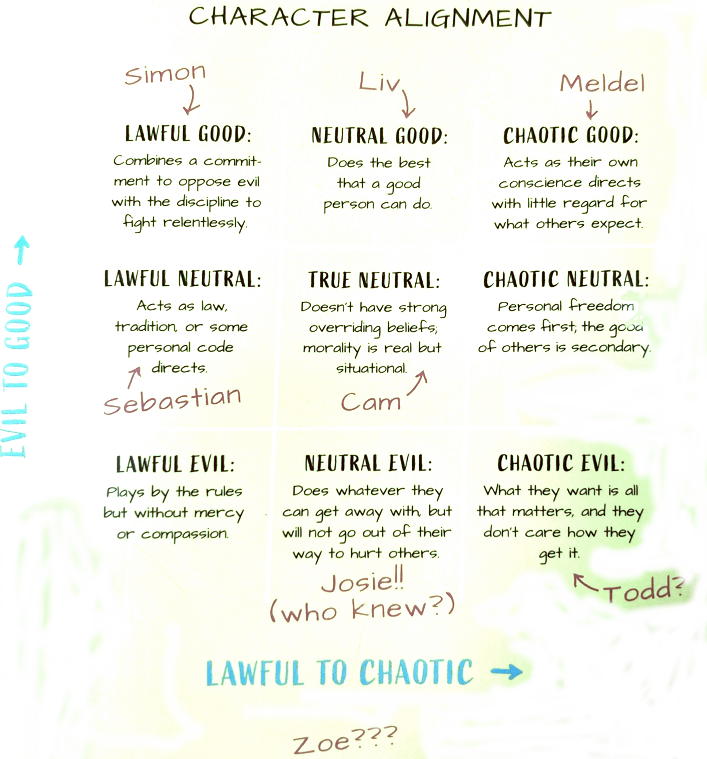 CHARACTER ALIGNMENT
Simon
Liv
Meldel
LAWFUL GOOD:
Combines a commit-
ment to oppose evil
with the discipline to
fight relentlessly.
NEUTRAL GOOD:
Does the best
that a good
person can do.
CHAOTIC GOOD:
Acts as their own
conscience directs
with little regard for
what others expect.
LAWFUL NEUTRAL:
Acts as law,
tradition, or some
personal code
directs.
Sebastian
TRUE NEUTRAL:
Doesn't have strong
overriding beliefs;
morality is real but
situational.
Cam
CHAOTIC NEUTRAL:
Personal freedom
comes first; the good
of others is secondary.
EVIL TO GOOD →
LAWFUL EVIL:
Plays by the rules
but without mercy
or compassion.
NEUTRAL EVIL:
Does whatever they
can get away with, but
will not go out of their
way to hurt others.
Josie!!
(who knew?)
CHAOTIC EVIL:
What they want is all
that matters, and they
don't care how they
get it.
Todd?
LAWFUL TO CHAOTIC →
Zoe???